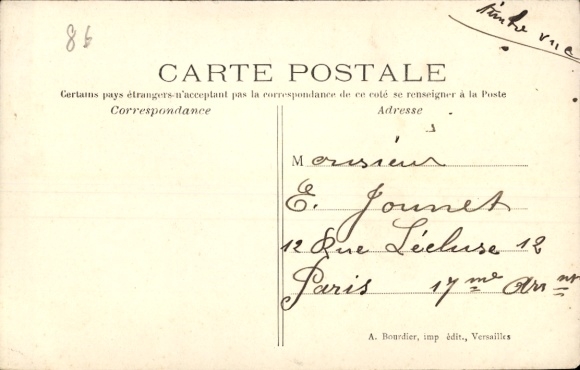 timbre vue
86
CARTE POSTALE
Certains pays étrangers n'acceptant pas la correspondance de ce coté se renseigner à la Poste
Correspondance
Adresse
Monsieur
E. Jounet
12 Rue Lécluse 12
Paris 17 me Arr nt
A. Bourdier, imp édit., Versailles